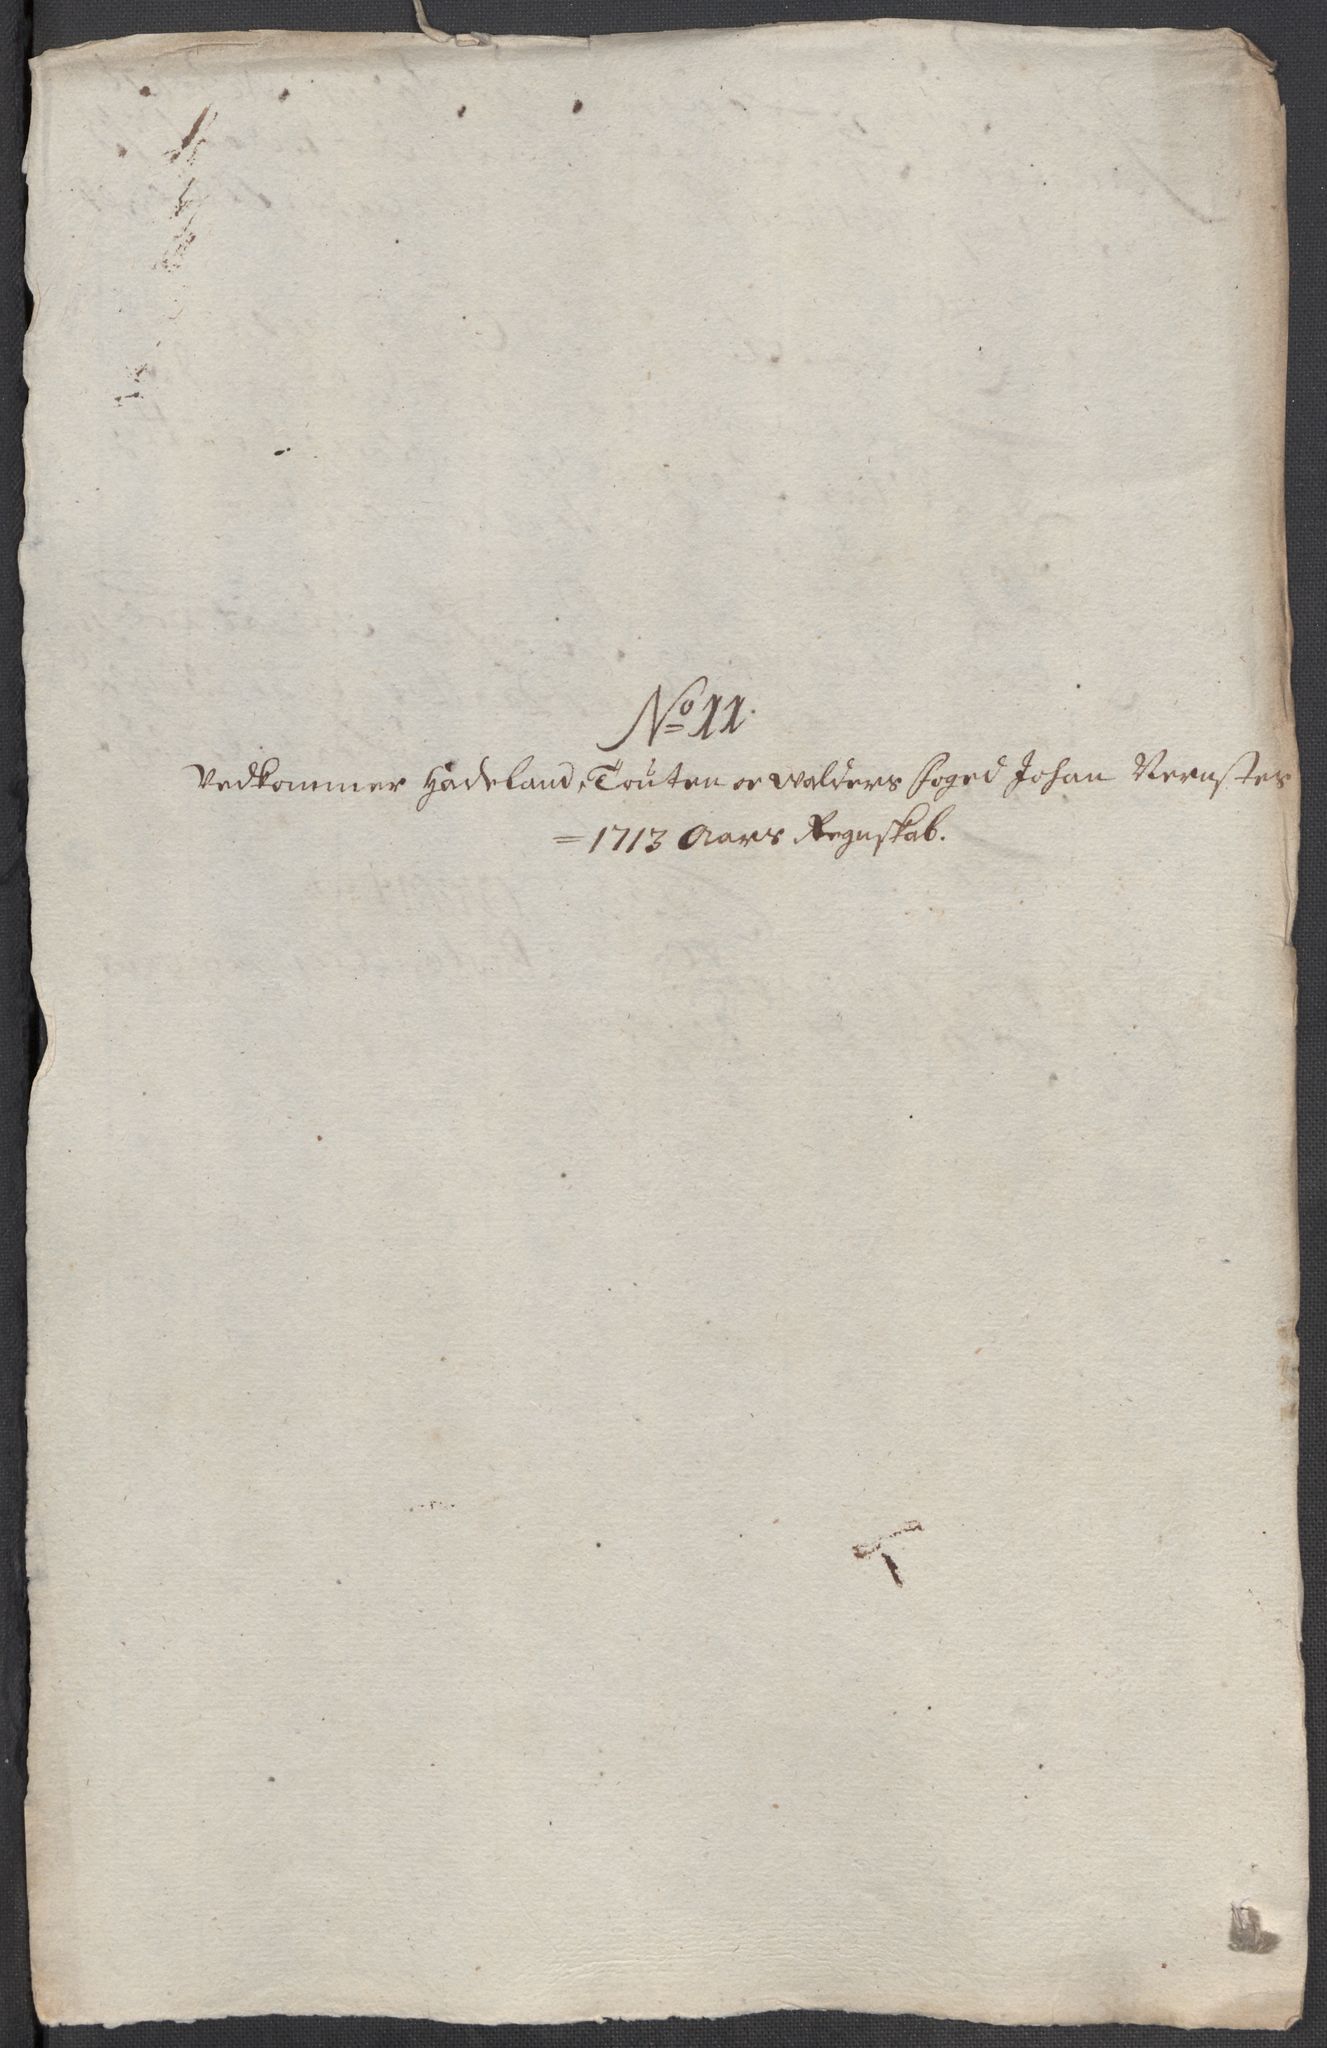 No 11.
Vedkommer Hadeland, Touten oc Walders Foged Johan
= 1713 Aars Regnskab.